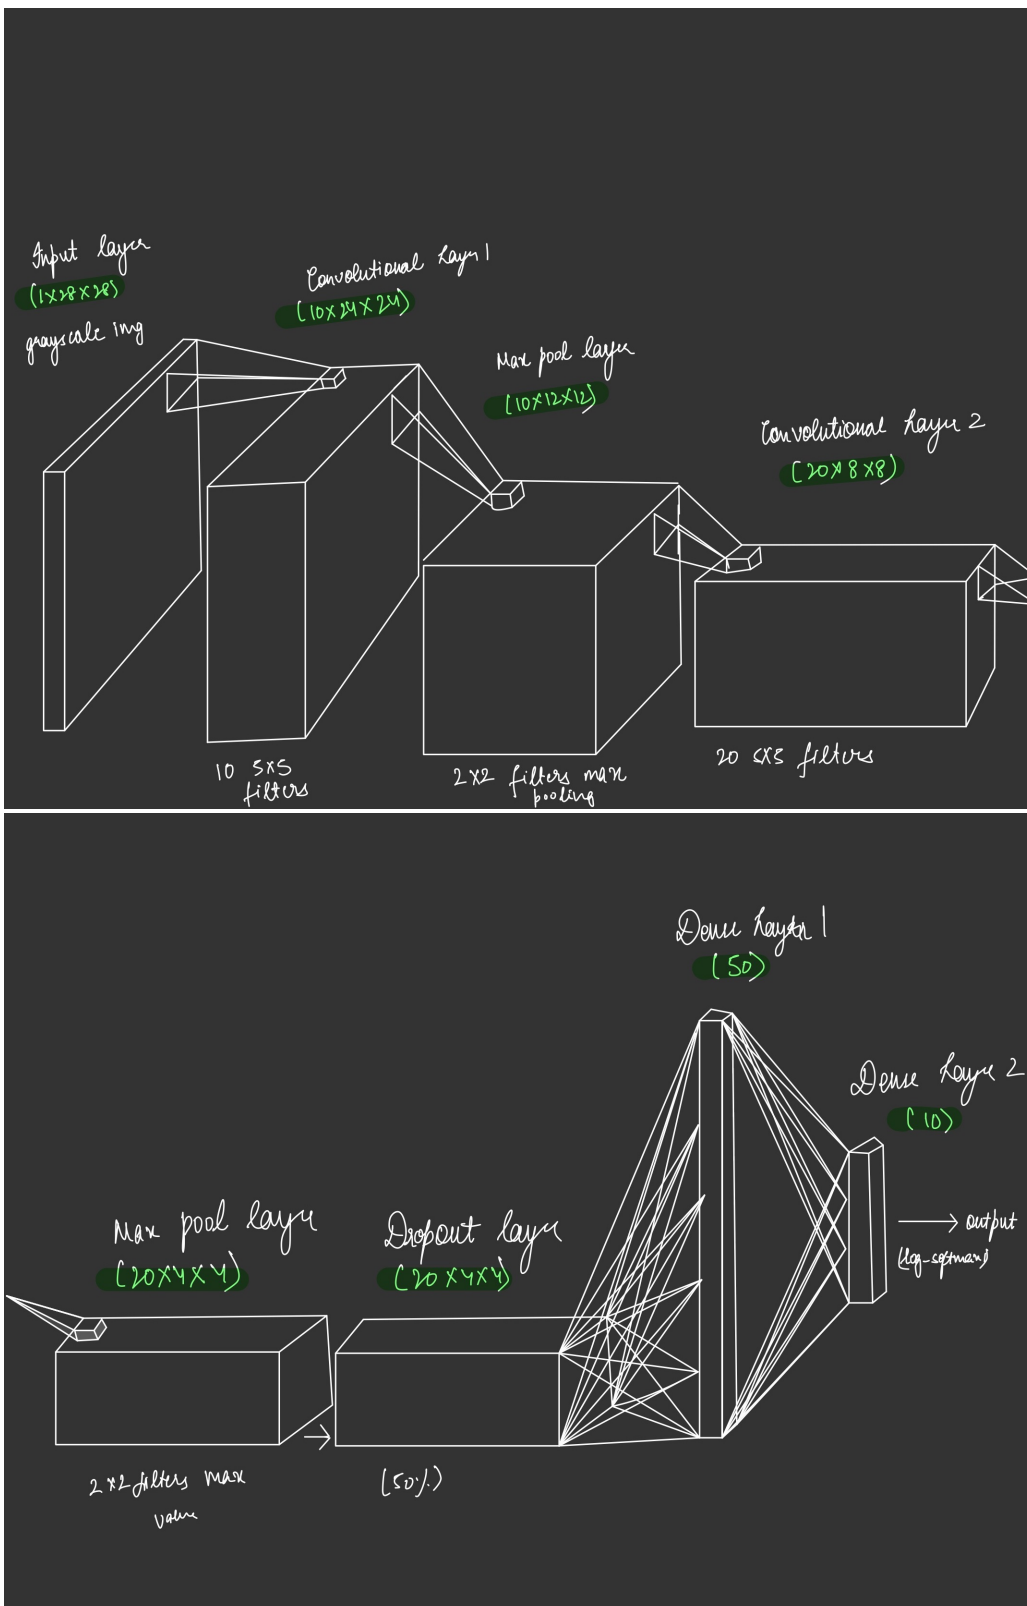 Input layer
(1x28x28)
grayscale img
Convolutional Layer 1
(10x24x24)
Max pool layer
(10x12x12)
Convolutional Layer 2
(20x8x8)
10 5x5
filters
2x2 filters max
pooling
20 5x5 filters
Dense Layer 1
(50)
Dense Layer 2
(10)
Max pool layer
(20x4x4)
Dropout layer
(20x4x4)
→ output
(log-softmax)
2x2 filters max
value
(50%)